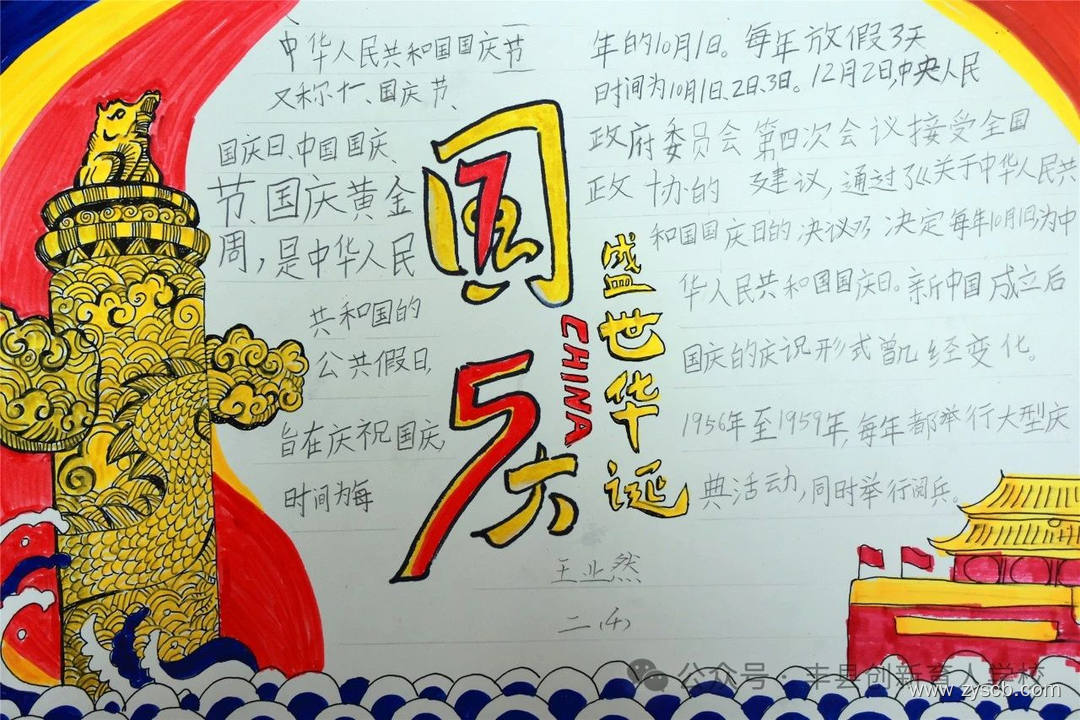 中华人民共和国国庆节
又称十一、国庆节、
国庆日、中国国庆、
节、国庆黄金
周，是中华人民
共和国的
公共假日，
旨在庆祝国庆，
时间为每
国庆
75
CHINA
盛世华诞
年的10月1日。每年放假3天
时间为10月1日、2日、3日。12月2日，中央人民
政府委员会第四次会议接受全国
政协的建议，通过了《关于中华人民共
和国国庆日的决议》，决定每年10月1日为中
华人民共和国国庆日。新中国成立后
国庆的庆祝形式曾几经变化。
1956年至1959年，每年都举行大型庆
典活动，同时举行阅兵。
王业然
二（4）
公众号·丰县创新育人学校
www.zyscb.com